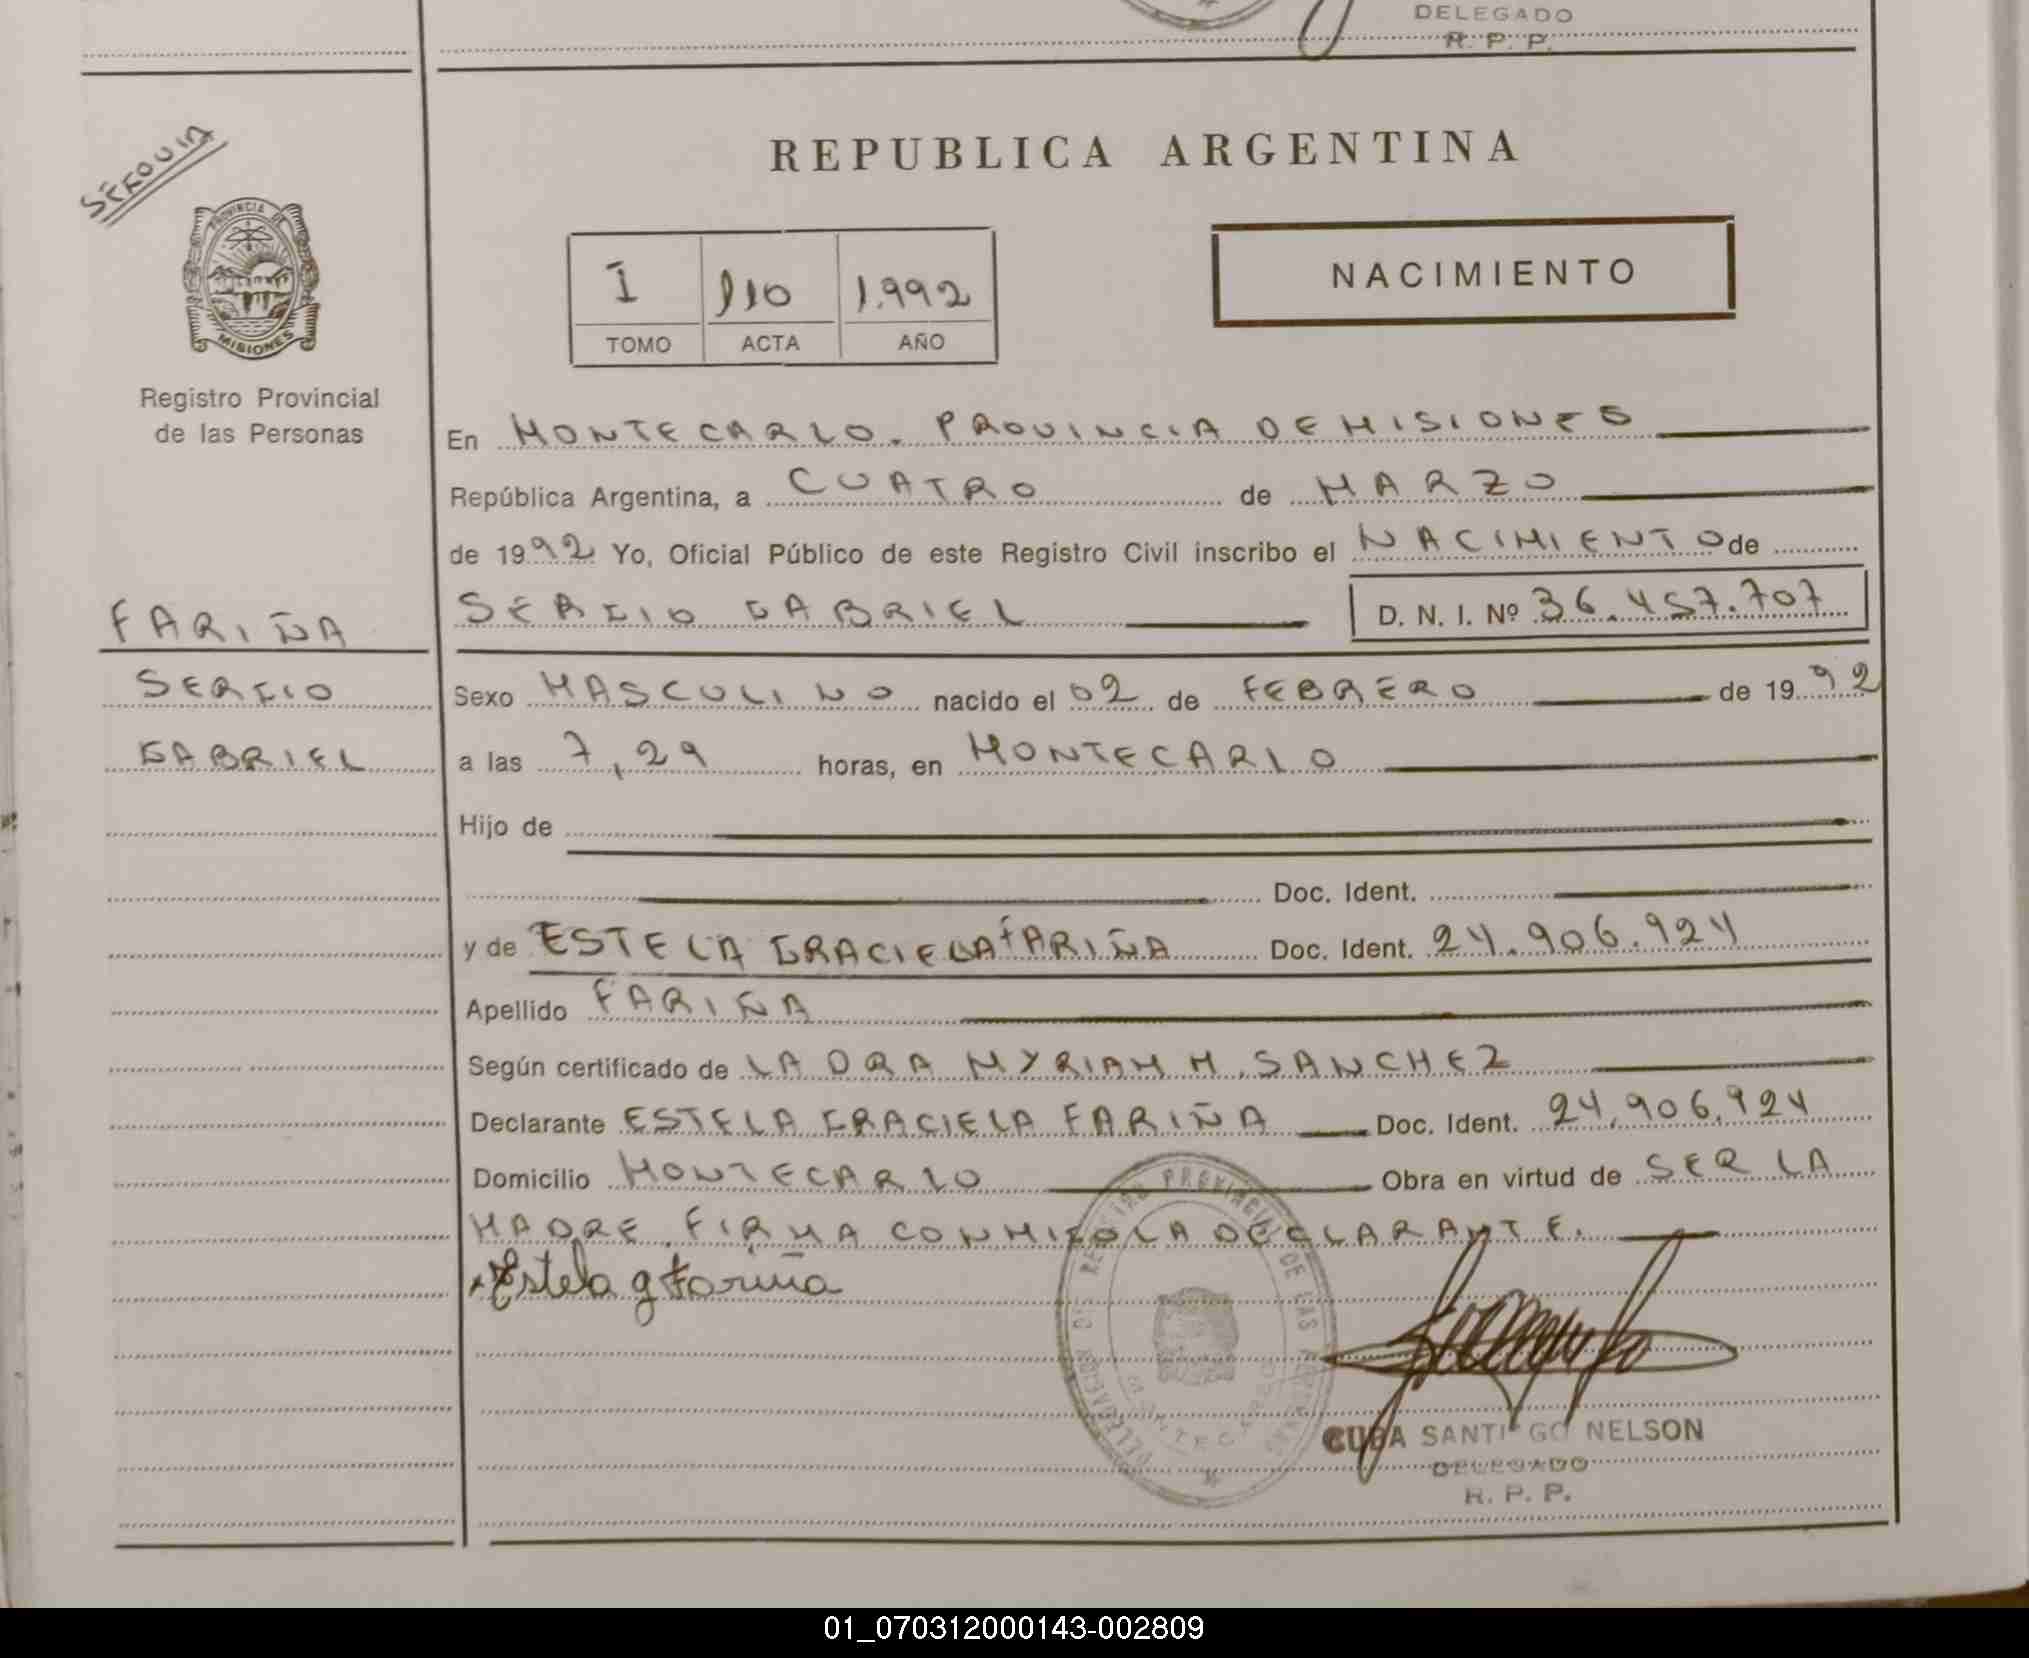 DELEGADO
R. P. P.
REPUBLICA ARGENTINA
PROVINCIA DE
MISIONES
Registro Provincial
de las Personas
I 110 1.992
TOMO ACTA AÑO
NACIMIENTO
En MONTECARLO. PROVINCIA DE MISIONES
República Argentina, a CUATRO de MARZO
de 1992 Yo, Oficial Público de este Registro Civil inscribo el NACIMIENTO de
SERGIO GABRIEL D. N. I. Nº 36.457.707
FARIÑA
SERGIO
GABRIEL
Sexo MASCULINO nacido el 02 de FEBRERO de 1992
a las 7,29 horas, en MONTECARLO
Hijo de
Doc. Ident.
y de ESTELA GRACIELA FARIÑA Doc. Ident. 24.906.924
Apellido FARIÑA
Según certificado de LA DRA MYRIAM M. SANCHEZ
Declarante ESTELA GRACIELA FARIÑA Doc. Ident. 24.906.924
Domicilio MONTECARLO Obra en virtud de SER LA
MADRE. FIRMA CONMIGO LA DECLARANTE.
Estela g Fariña
REGISTRO PROVINCIAL DE LAS PERSONAS
MONTECARLO
CUBA SANTIAGO NELSON
DELEGADO
R. P. P.
01_070312000143-002809